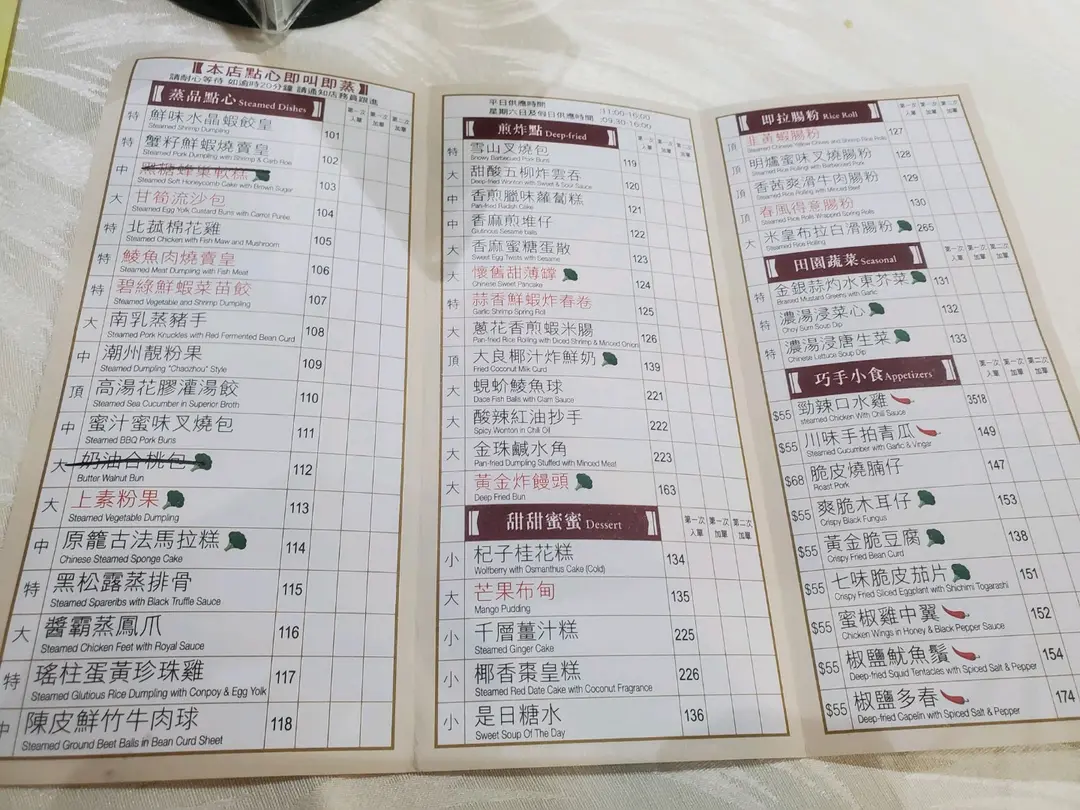 【本店點心即叫即蒸】
請耐心等待 如逾時20分鐘 請通知店務員跟進
蒸品點心 Steamed Dishes 第一次 入單 第一次 加單 第二次 加單
特 鮮味水晶蝦餃皇 101
Steamed Shrimp Dumpling
特 蟹籽鮮蝦燒賣皇 102
Steamed Pork Dumpling with Shrimp & Carb Roe
中 黑糖蜂巢軟糕 103
Steamed Soft Honeycomb Cake with Brown Sugar
大 甘筍流沙包 104
Steamed Egg Yolk Custard Buns with Carrot Purée
特 北菰棉花雞 105
Steamed Chicken with Fish Maw and Mushroom
特 鯪魚肉燒賣皇 106
Steamed Meat Dumpling with Fish Meat
特 碧綠鮮蝦菜苗餃 107
Steamed Vegetable and Shrimp Dumpling
大 南乳蒸豬手 108
Steamed Pork Knuckles with Red Fermented Bean Curd
中 潮州靚粉果 109
Steamed Dumpling "Chaozhou" Style
頂 高湯花膠灌湯餃 110
Steamed Sea Cucumber in Superior Broth
中 蜜汁蜜味叉燒包 111
Steamed BBQ Pork Buns
大 奶油合桃包 112
Butter Walnut Bun
大 上素粉果 113
Steamed Vegetable Dumpling
中 原籠古法馬拉糕 114
Chinese Steamed Sponge Cake
特 黑松露蒸排骨 115
Steamed Spareribs with Black Truffle Sauce
大 醬霸蒸鳳爪 116
Steamed Chicken Feet with Royal Sauce
特 瑤柱蛋黃珍珠雞 117
Steamed Glutious Rice Dumpling with Conpoy & Egg Yolk
中 陳皮鮮竹牛肉球 118
Steamed Ground Beet Balls in Bean Curd Sheet
平日供應時間 11:00-16:00
星期六日及假日供應時間 09:30-16:00
煎炸點 Deep-fried 第一次 入單 第一次 加單 第二次 加單
特 雪山叉燒包 119
Snowy Barbecued Pork Buns
大 甜酸五柳炸雲吞 120
Deep-fried Wonton with Sweet & Sour Sauce
中 香煎臘味蘿蔔糕 121
Pan-fried Radish Cake
中 香麻煎堆仔 122
Glutinous Sesame balls
大 香麻蜜糖蛋散 123
Sweet Egg Twists with Sesame
大 懷舊甜薄罉 124
Chinese Sweet Pancake
特 蒜香鮮蝦炸春卷 125
Garlic Shrimp Spring Roll
大 蔥花香煎蝦米腸 126
Pan-fried Rice Rolling with Diced Shrimp & Minced Onion
頂 大良椰汁炸鮮奶 139
Fried Coconut Milk Curd
大 蜆蚧鯪魚球 221
Dace Fish Balls with Clam Sauce
大 酸辣紅油抄手 222
Spicy Wonton in Chili Oil
大 金珠鹹水角 223
Pan-fried Dumpling Stuffed with Minced Meat
大 黃金炸饅頭 163
Deep Fried Bun
甜甜蜜蜜 Dessert 第一次 入單 第一次 加單 第二次 加單
小 杞子桂花糕 134
Wolfberry with Osmanthus Cake (Cold)
大 芒果布甸 135
Mango Pudding
小 千層薑汁糕 225
Steamed Ginger Cake
小 椰香棗皇糕 226
Steamed Red Date Cake with Coconut Fragrance
小 是日糖水 136
Sweet Soup Of The Day
即拉腸粉 Rice Roll 第一次 入單 第一次 加單 第二次 加單
頂 韭黃蝦腸粉 127
Steamed Chinese Yellow Chives and Shrimp Rice Rolls
頂 明爐蜜味叉燒腸粉 128
Steamed Rice Rolling with Barbecued Pork
頂 香茜爽滑牛肉腸粉 129
Steamed Rice Rolling with Minced Beef
頂 春風得意腸粉 130
Steamed Rice Rolls Wrapped Spring Rolls
大 米皇布拉白滑腸粉 265
Steamed Rice Rolling
田園蔬菜 Seasonal 第一次 入單 第一次 加單 第二次 加單
特 金銀蒜灼水東芥菜 131
Braised Mustard Greens with Garlic
特 濃湯浸菜心 132
Choy Sum Soup Dip
特 濃湯浸唐生菜 133
Chinese Lettuce Soup Dip
巧手小食 Appetizers 第一次 入單 第一次 加單 第二次 加單
$55 勁辣口水雞 3518
steamed Chicken With Chili Sauce
$55 川味手拍青瓜 149
Steamed Cucumber with Garlic & Vingar
$68 脆皮燒腩仔 147
Roast Pork
$55 爽脆木耳仔 153
Crispy Black Fungus
$55 黃金脆豆腐 138
Crispy Fried Bean Curd
$55 七味脆皮茄片 151
Crispy Fried Sliced Eggplant with Shichimi Togarashi
$55 蜜椒雞中翼 152
Chicken Wings in Honey & Black Pepper Sauce
$55 椒鹽魷魚鬚 154
Deep-fried Squid Tentacles with Spiced Salt & Pepper
$55 椒鹽多春 174
Deep-fried Capelin with Spiced Salt & Pepper